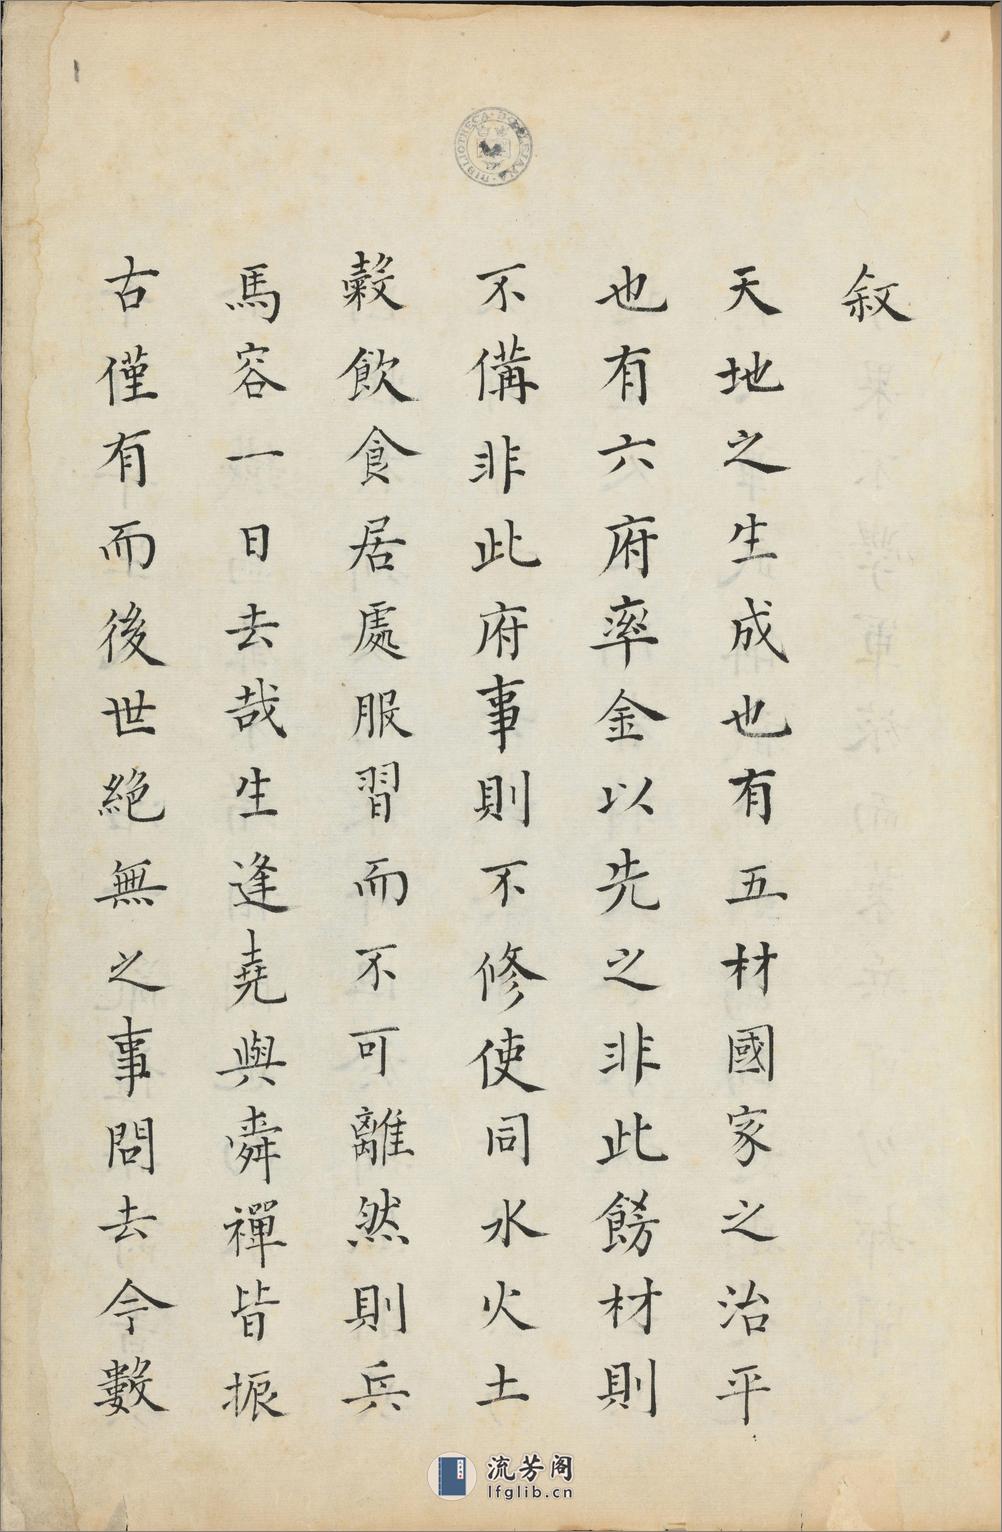 叙
天地之生成也有五材國家之治平
也有六府率金以先之非此餝材則
不備非此府事則不修使同水火土
糓飲食居處服習而不可離然則兵
馬容一日去哉生逢堯與舜禪皆振
古僅有而後世絶無之事問去今數
BIBLIOTHECA
流芳阁
lfglib.cn